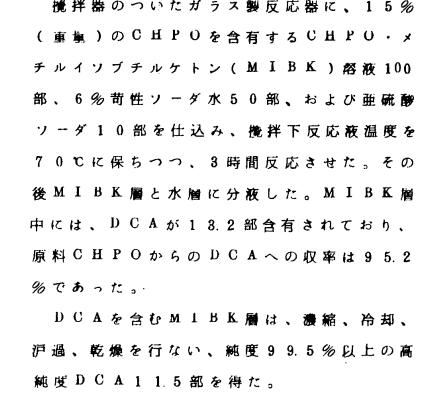 攪拌器のついたガラス製反応器に、15%
(重量)のCHPOを含有するCHPO・メ
チルイソブチルケトン(MIBK)溶液100
部、6%苛性ソーダ水50部、および亜硫酸
ソーダ10部を仕込み、攪拌下反応液温度を
70℃に保ちつつ、3時間反応させた。その
後MIBK層と水層に分液した。MIBK層
中には、DCAが13.2部含有されており、
原料CHPOからのDCAへの収率は95.2
%であった。
DCAを含むMIBK層は、濃縮、冷却、
沪過、乾燥を行ない、純度99.5%以上の高
純度DCA11.5部を得た。